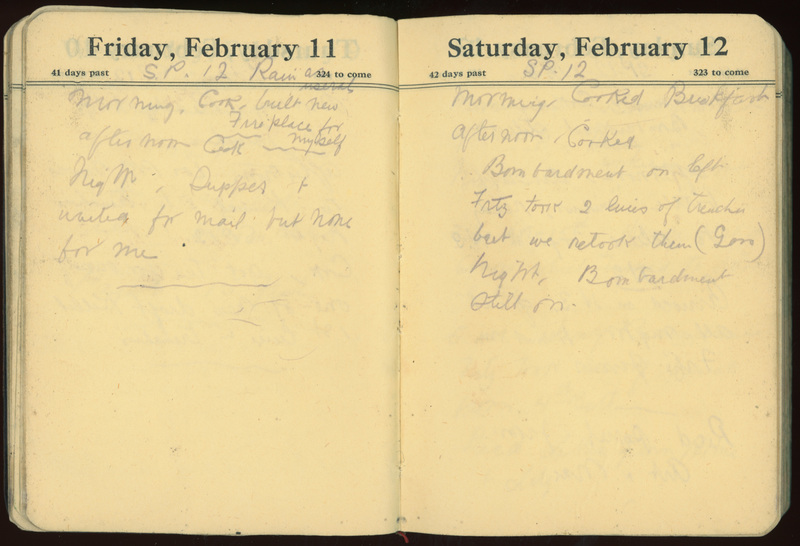 Friday, February 11
41 days past
324 to come
S.P. 12 Rain as
usual
Morning, Cook, built new
Fireplace for
myself
afternoon Cook
Night, Supper +
waited for mail but none
for me
Saturday, February 12
42 days past
323 to come
S.P. 12
Morning Cooked Breakfast
afternoon, Cooked
Bombardment on left
Fritz took 2 lines of trenches
but we retook them
Night, Bombardment
still on.